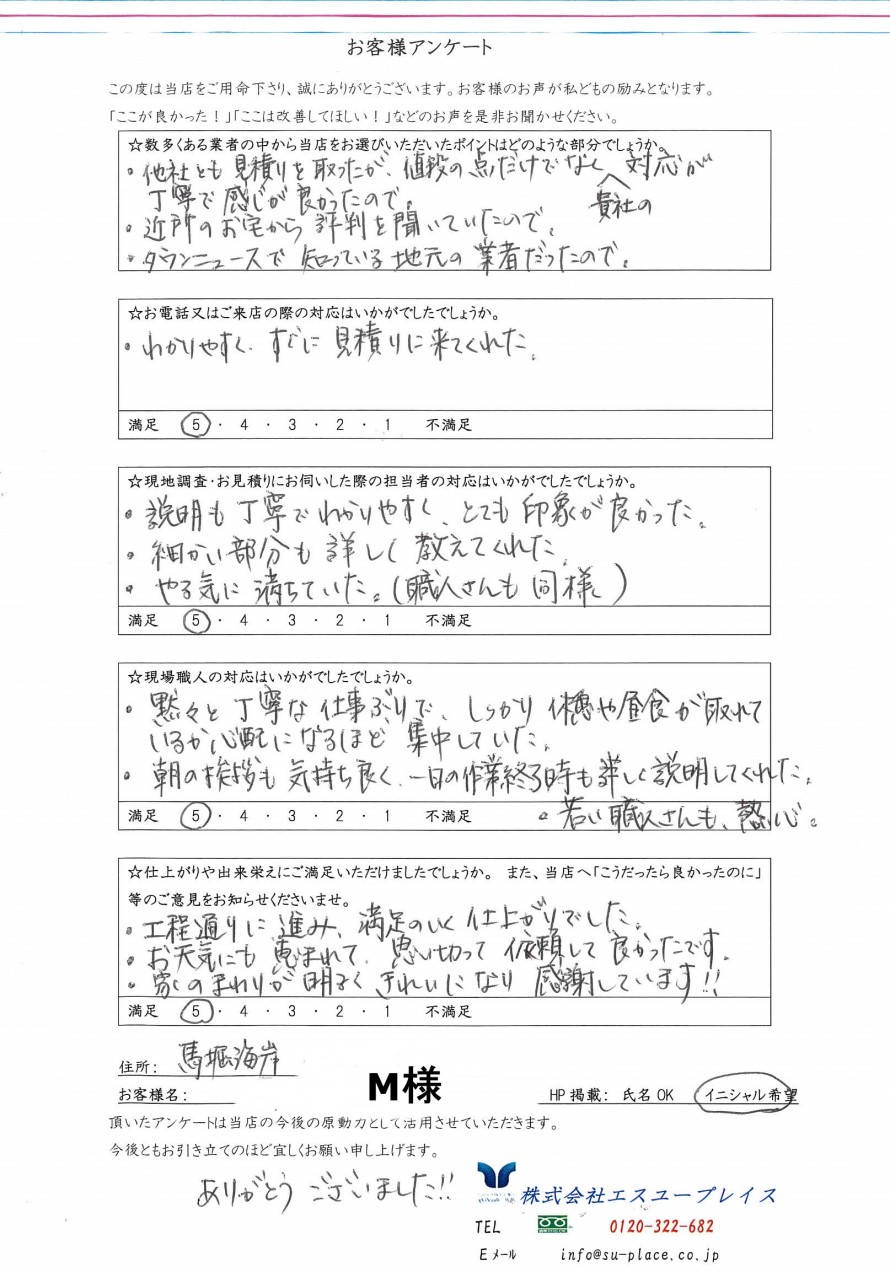 お客様アンケート
この度は当店をご用命下さり、誠にありがとうございます。お客様のお声が私どもの励みとなります。
「ここが良かった！」「ここは改善してほしい！」などのお声を是非お聞かせください。
☆数多くある業者の中から当店をお選びいただいたポイントはどのような部分でしょうか。
・他社とも見積りを取ったが、値段の点だけでなく 対応が
丁寧で感じが良かったので。
貴社の
・近所のお宅から評判を聞いていたので。
・タウンニュースで知っている地元の業者だったので。
☆お電話又はご来店の際の対応はいかがでしたでしょうか。
・わかりやすく、すぐに見積りに来てくれた。
満足 5 ・ 4 ・ 3 ・ 2 ・ 1 不満足
☆現地調査・お見積りにお伺いした際の担当者の対応はいかがでしたでしょうか。
・説明も丁寧でわかりやすく、とても印象が良かった。
・細かい部分も詳しく教えてくれた。
・やる気に満ちていた。(職人さんも同様。)
満足 5 ・ 4 ・ 3 ・ 2 ・ 1 不満足
☆現場職人の対応はいかがでしたでしょうか。
・黙々と丁寧な仕事ぶりで、しっかり休憩や昼食が取れて
いるか心配になるほど集中していた。
・朝の挨拶も気持ち良く、一日の作業終了時も詳しく説明してくれた。
満足 5 ・ 4 ・ 3 ・ 2 ・ 1 不満足
・若い職人さんも、熱心。
☆仕上がりや出来栄えにご満足いただけましたでしょうか。 また、当店へ「こうだったら良かったのに」
等のご意見をお知らせくださいませ。
・工程通りに進み、満足のいく仕上がりでした。
・お天気にも恵まれて、思い切って依頼して良かったです。
・家のまわりが明るくきれいになり感謝しています!!
満足 5 ・ 4 ・ 3 ・ 2 ・ 1 不満足
住所: 馬堀海岸
お客様名: M様 HP掲載: 氏名OK イニシャル希望
頂いたアンケートは当店の今後の原動力として活用させていただきます。
今後ともお引き立てのほど宜しくお願い申し上げます。
ありがとうございました!!
株式会社エスユープレイス
TEL 0120-322-682
Eメール info@su-place.co.jp